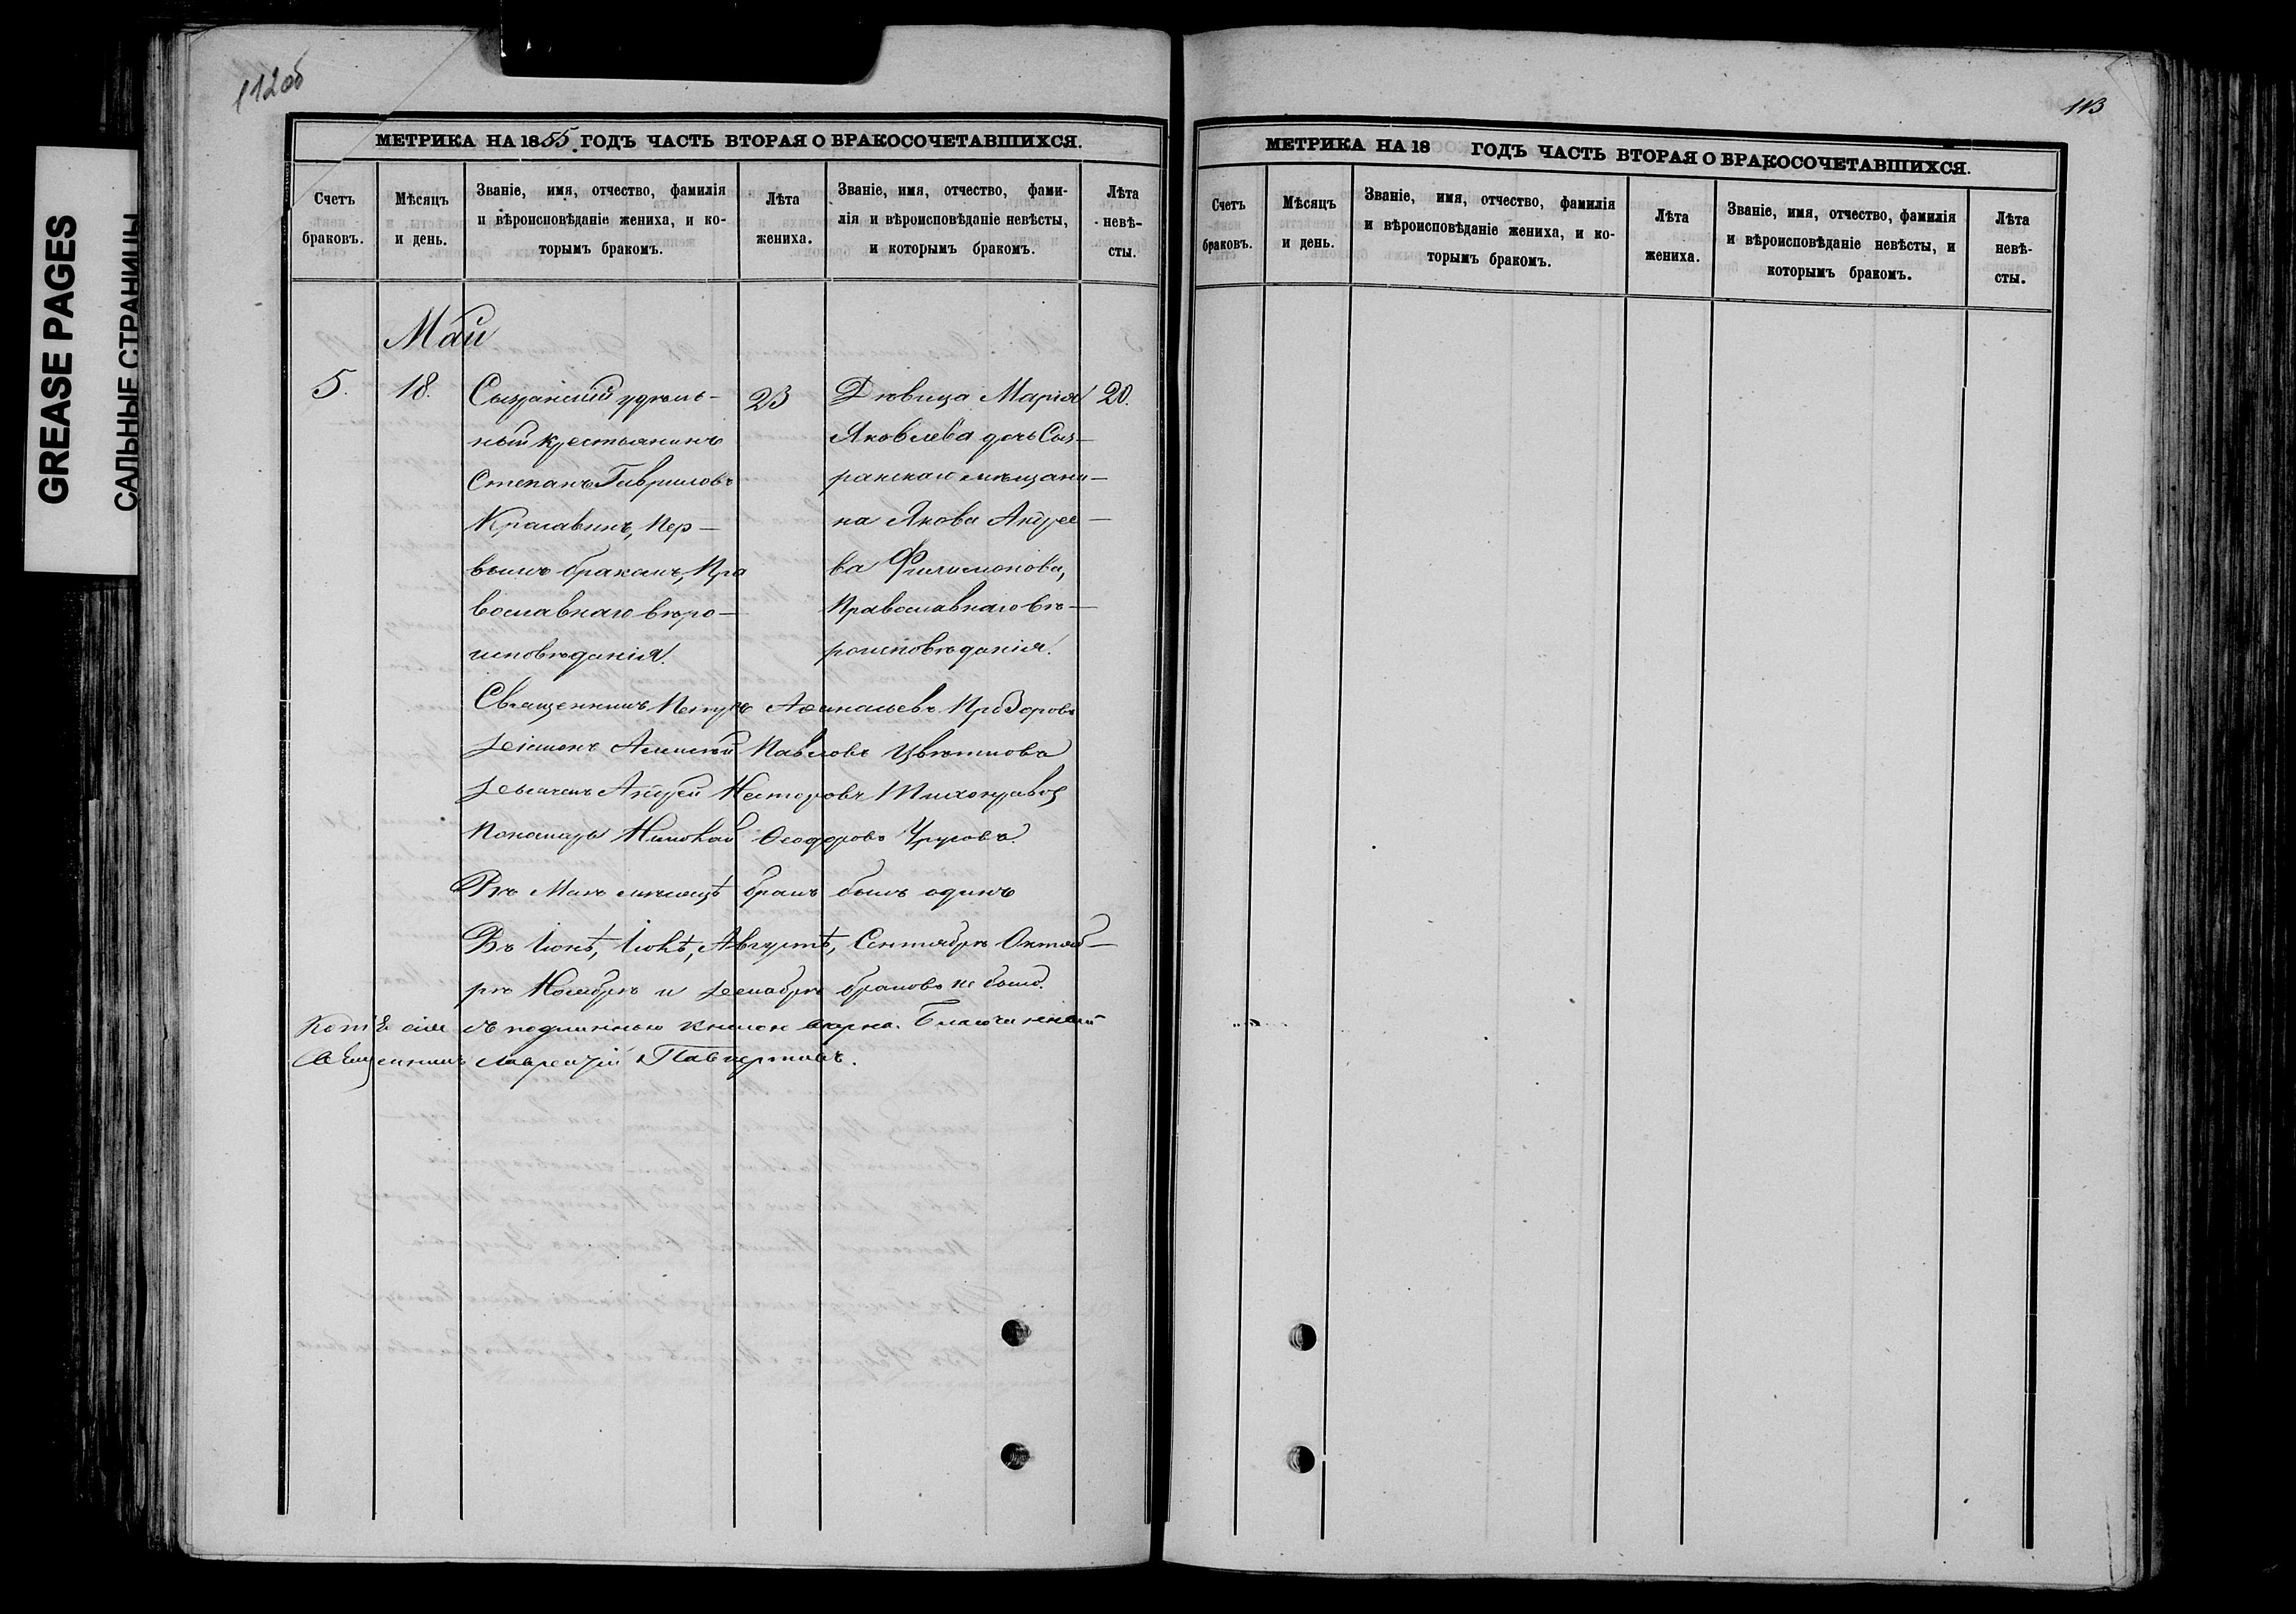 GREASE PAGES
САЛЬНЫЕ СТРАНИЦЫ
112об
МЕТРИКА НА 1855 ГОДЪ ЧАСТЬ ВТОРАЯ О БРАКОСОЧЕТАВШИХСЯ.
Счетъ браковъ.
Мѣсяцъ и день.
Званіе, имя, отчество, фамилія
и вѣроисповѣданіе жениха, и ко-
торымъ бракомъ.
Лѣта жениха.
Званіе, имя, отчество, фами-
лія и вѣроисповѣданіе невѣсты,
и которымъ бракомъ.
Лѣта невѣ-
сты.
Май
5.
18.
Сызранскій удѣль-
ный крестьянинъ
Степанъ Гавриловъ
Красавинъ, Пер-
вымъ бракомъ, Пра
вославнаго вѣро-
исповѣданія.
23
Дѣвица Марія
Яковлева дочь Сыз-
ранскаго мѣщани-
на Якова Андрее-
ва Филимонова,
Православнаго вѣ-
роисповѣданія.
20.
Священникъ Петръ Афанасьевъ
Діаконъ Алексѣй Павловъ Цвѣтковъ
Дьячекъ Андрей Несторовъ Тихонравов
Пономарь Николай Феодоровъ Урусовъ.
Въ Маѣ мѣсяцѣ бракъ былъ одинъ
Въ Іюнѣ, Іюлѣ, Августѣ, Сентябрѣ Октяб-
рѣ Ноябрѣ и Декабрѣ браковъ не было.
Копія сія съ подлинною книгою вѣрна. Благочинный
Священникъ Лаврентій
113
МЕТРИКА НА 18 ГОДЪ ЧАСТЬ ВТОРАЯ О БРАКОСОЧЕТАВШИХСЯ.
Счетъ браковъ.
Мѣсяцъ и день.
Званіе, имя, отчество, фамилія
и вѣроисповѣданіе жениха, и ко-
торымъ бракомъ.
Лѣта жениха.
Званіе, имя, отчество, фамилія
и вѣроисповѣданіе невѣсты, и
которымъ бракомъ.
Лѣта невѣ-
сты.